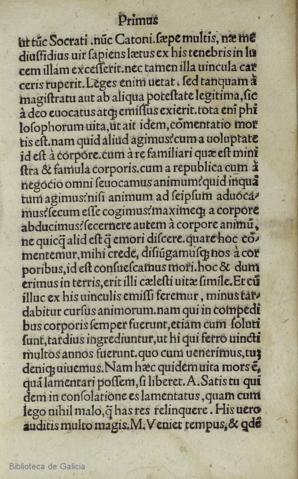 Primus
ut tũc Socrati .nũc Catoni.sæpe multis, næ me
diusfidius uir sapiens lætus ex his tenebris in lu
cem illam excesserit.nec tamen illa uincula car
ceris ruperit. Leges enim uetãt. sed tanquam à
magistratu aut ab aliqua potestate legitima, sic
à deo euocatus atq; emissus exierit. tota eni phi
losophorum uita, ut ait idem, cõmentatio mor
tis est.nam quid aliud agimus? cum a uoluptate
id est à corpore. cum à re familiari quæ est mini
stra & famula corporis.cum a republica cum à
negocio omni seuocamus animum? quid inquã
tum agimus? nisi animum ad seipsum aduoca-
mus? secum esse cogimus? maximeq; a corpore
abducimus? secernere autem à corpore animũ,
ne quicq̃ aliud est q̃ emori discere. quare hoc cõ-
mentemur, mihi crede, disiũgamusq; nos à cor
poribus, id est consuescamus mori. hoc & dum
erimus in terris, erit illi cælesti uitæ simile. Et cũ
illuc ex his uinculis emissi feremur, minus tar-
dabitur cursus animorum. nam qui in compedi
bus corporis semper fuerunt, etiam cum soluti
sunt, tardius ingrediuntur, ut hi qui ferro uincti
multos annos fuerunt. quo cum uenerimus, tuʒ
deniq; uiuemus. Nam hæc quidem uita mors ẽ,
quã lamentari possem, si liberet. A. Satis tu qui
dem in consolatione es lamentatus, quam cum
lego nihil malo, q̃ has res relinquere . His uero
auditis multo magis. M. Veniet tempus, & qdẽ
Biblioteca de Galicia